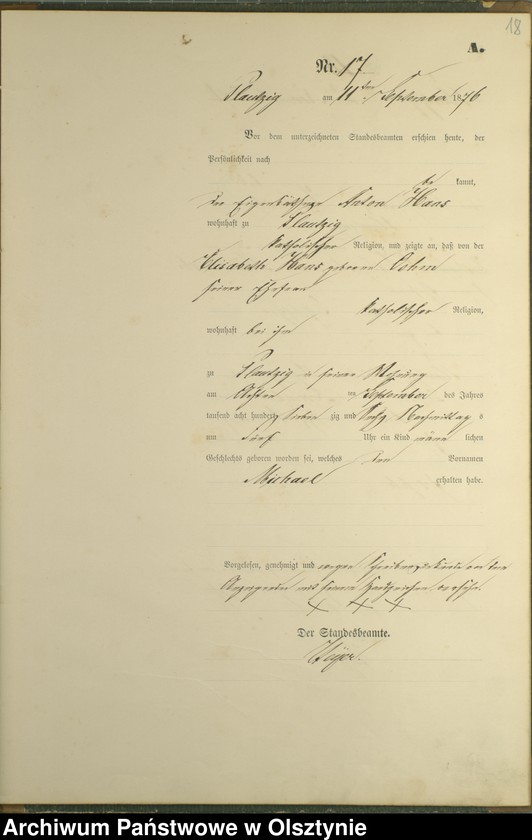 18
A.
Nr. 17
Plautzig am 11ten September 1876
Vor dem unterzeichneten Standesbeamten erschien heute, der
Persönlichkeit nach
be kannt,
der Eigenkäthner Anton Hans
wohnhaft zu Plautzig
katholischer Religion, und zeigte an, daß von der
Elisabeth Hans geborne Oehm
seiner Ehefrau
katholischer Religion,
wohnhaft bei ihm
zu Plautzig in seiner Wohnung
am September des Jahres
tausend acht hundert sieben zig und sechs Nachmittag s
um fünf Uhr ein Kind männ lichen
Geschlechts geboren worden sei, welches den Vornamen
Michael erhalten habe.
Vorgelesen, genehmigt und wegen Schreibensunkunde von dem
Anzeigenden mit seinem Handzeichen versehen.
+ + +
Der Standesbeamte.
Archiwum Państwowe w Olsztynie